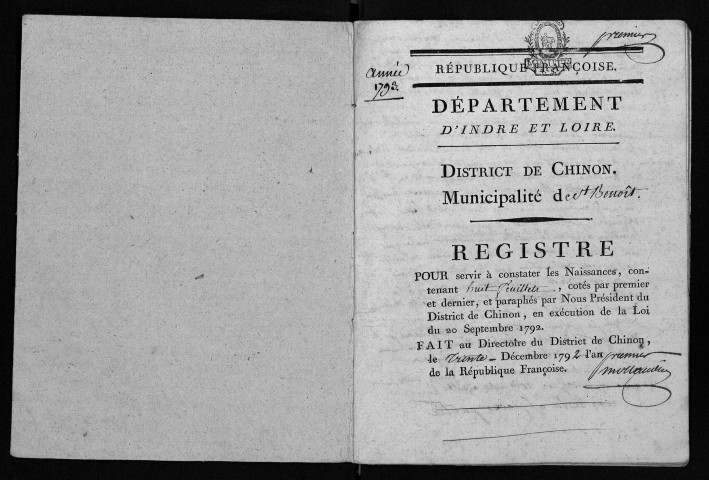 premier
RÉPUBLIQUE FRANÇOISE.
Année
1793.
DÉPARTEMENT
D'INDRE ET LOIRE.
DISTRICT DE CHINON.
Municipalité de St Benoît.
REGISTRE
POUR servir à constater les Naissances, con-
tenant huit feuillets, cotés par premier
et dernier, et paraphés par Nous Président du
District de Chinon, en exécution de la Loi
du 20 Septembre 1792.
FAIT au Directoire du District de Chinon,
le trente Décembre 1792 l'an premier
de la République Françoise.